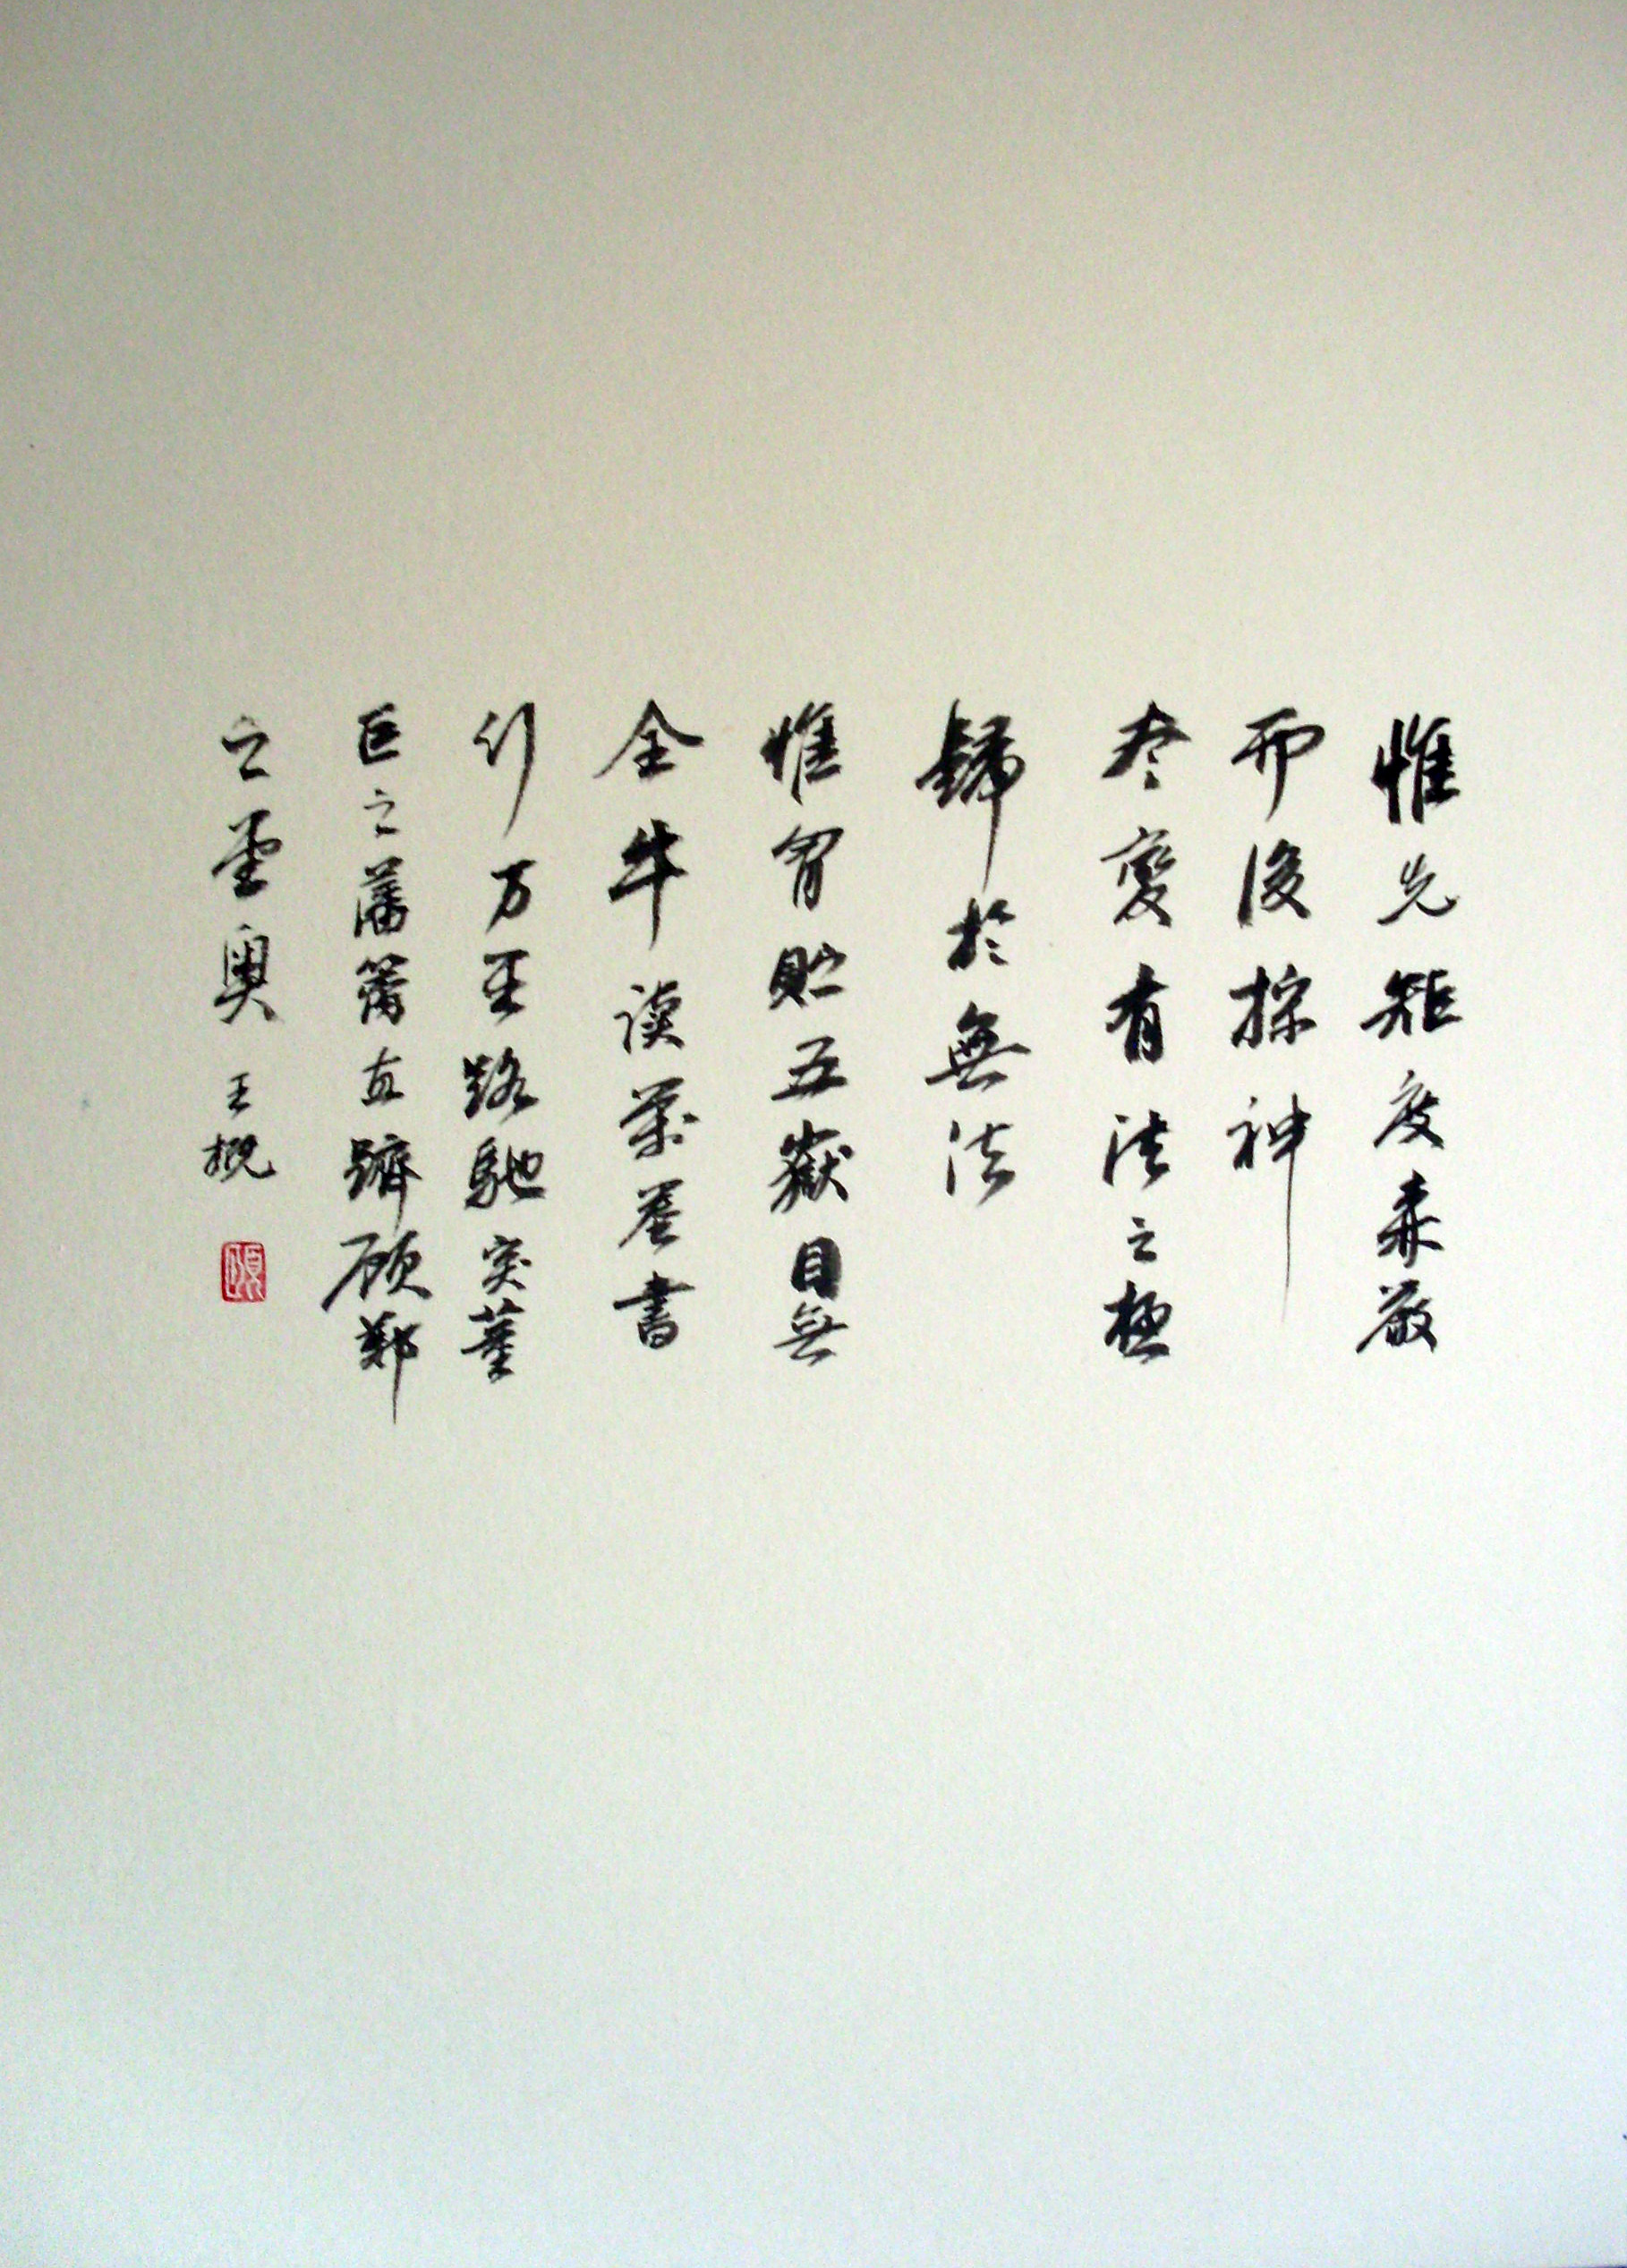 惟先矩度森嚴
而後探神
尽變有法之極
歸於無法
惟胸貯五嶽目無
全牛讀萬卷書
行万里路馳突董
巨之藩籬直躋顾鄭
之堂奥 王概